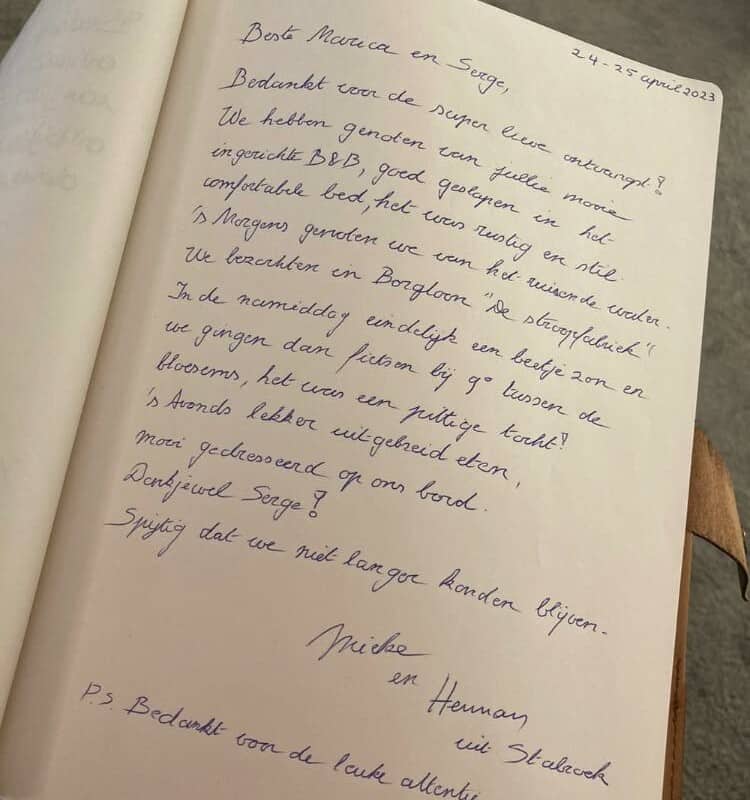 24-25 april 2023
Beste Marica en Serge,
Bedankt voor de super lieve ontvangst!
We hebben genoten van jullie mooie
ingerichte B&B, goed geslapen in het
comfortabele bed, het was rustig en stil.
's Morgens genoten we van het ruisende water.
We bezochten in Borgloon "De stroopfabriek"
In de namiddag eindelijk een beetje zon en
we gingen dan fietsen bij 9° tussen de
bloesems, het was een pittige tocht!
's Avonds lekker uitgebreid eten,
mooi gedresseerd op ons bord.
Dankjewel Serge!
Spijtig dat we niet langer konden blijven.
Mieke
en
Herman
uit Stabroek
P.S. Bedankt voor de leuke attentie